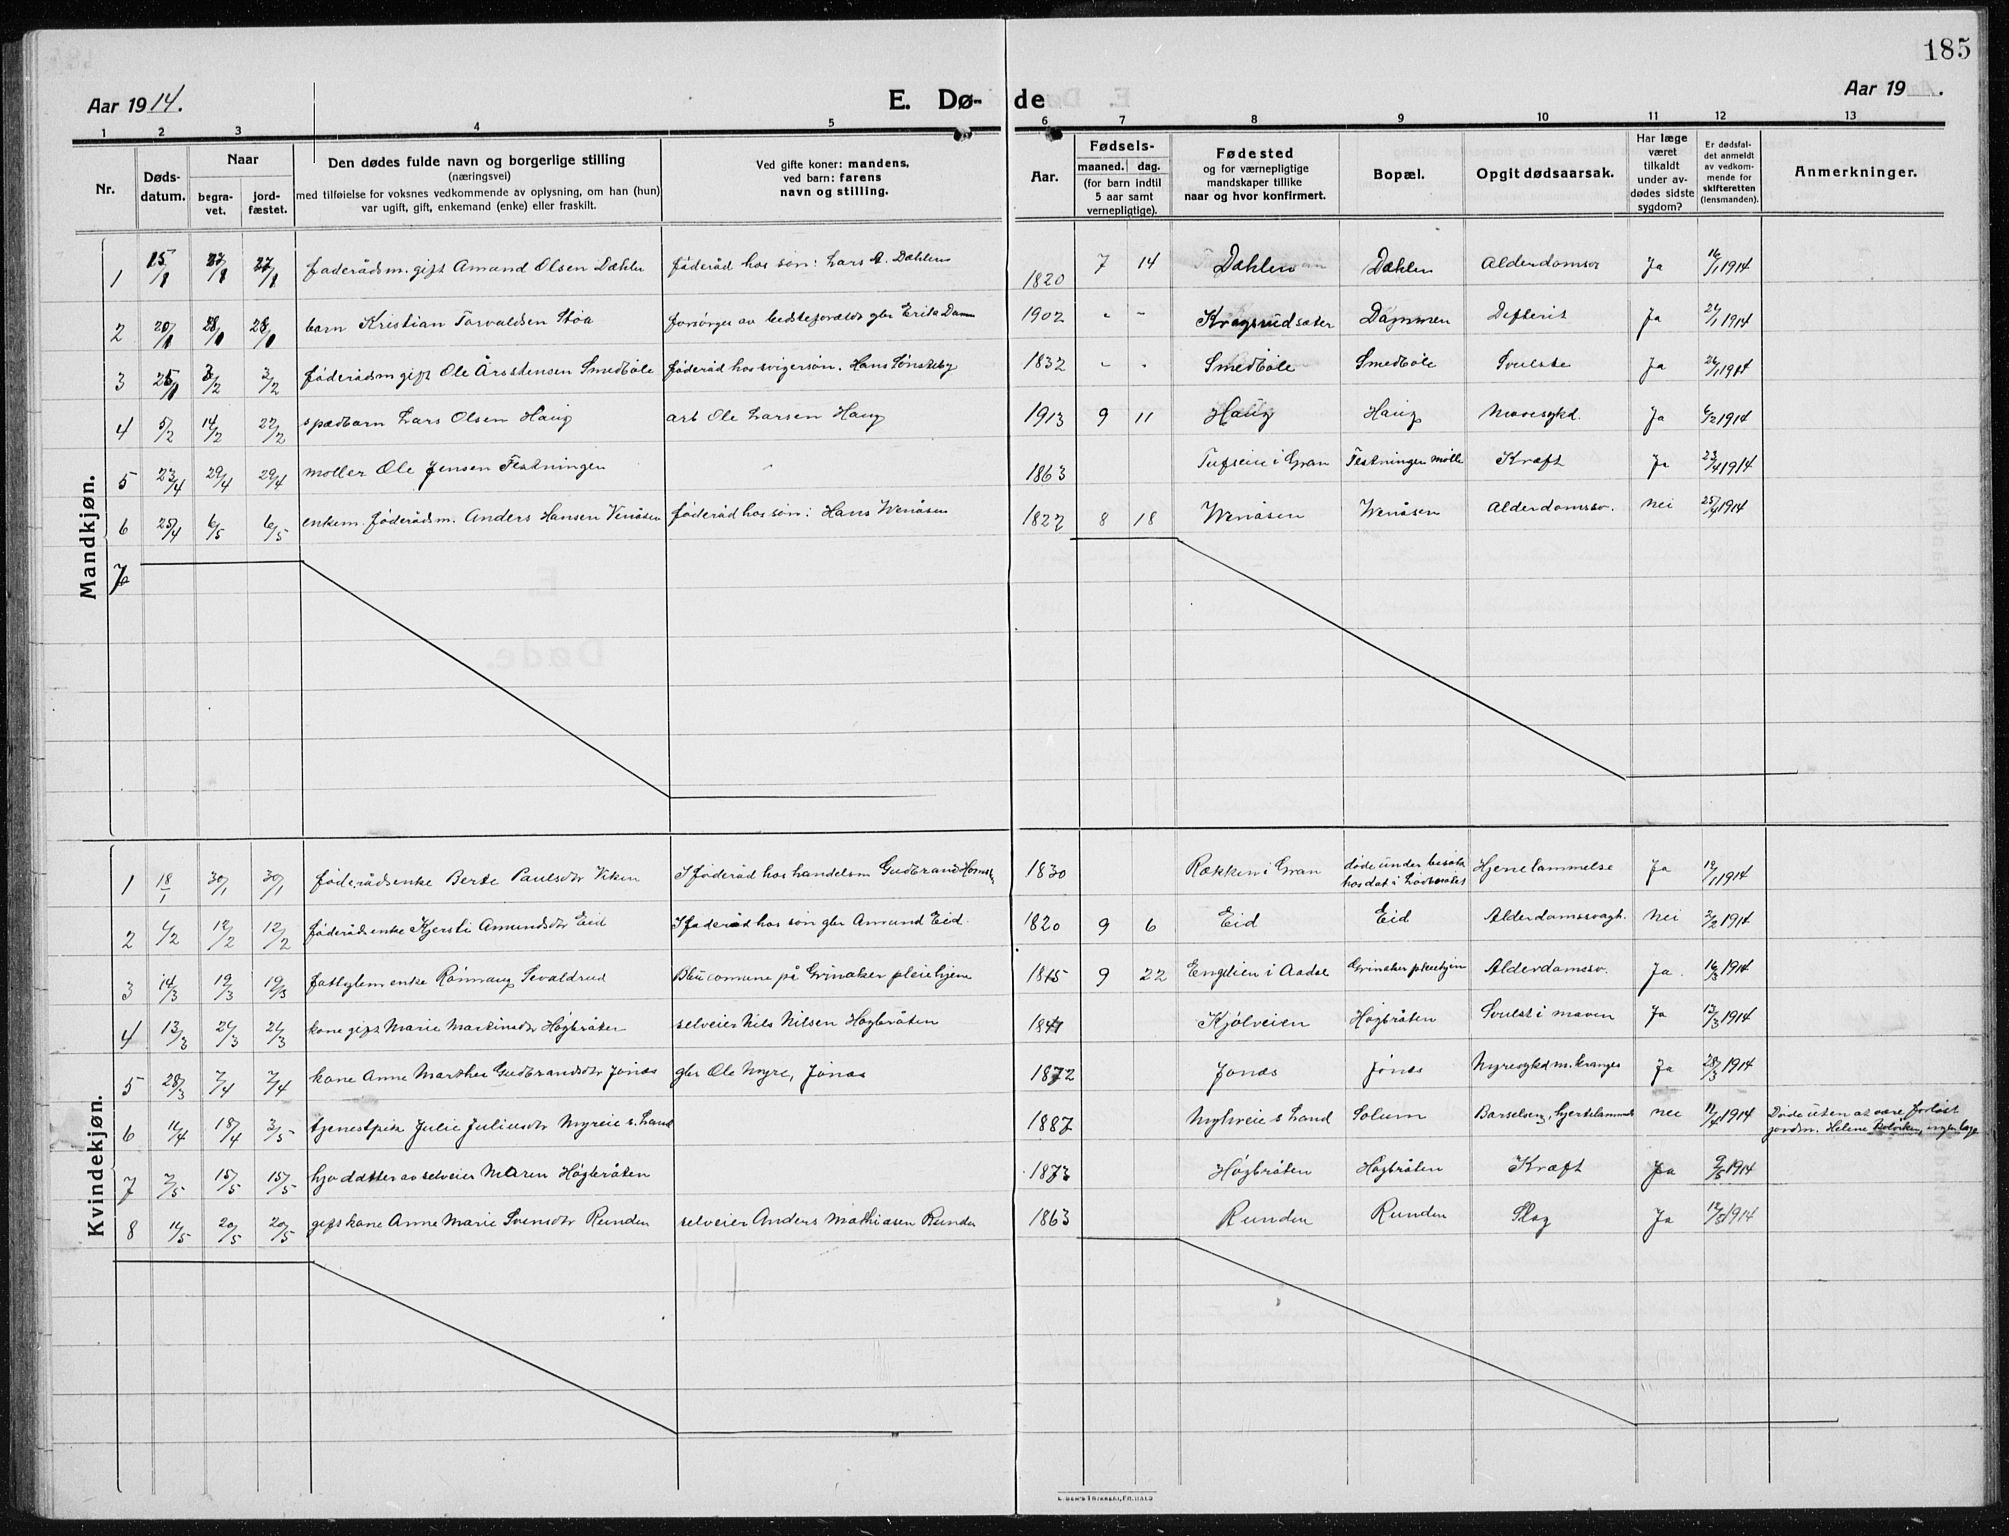 185
Aar 1914.
E. Dø-
de
Aar 19 .
1 2 3 4 5 6 7 8 9 10 11 12 13
Nr.
Døds-
datum.
Naar
begra-
vet.
jord-
fæstet.
Den dødes fulde navn og borgerlige stilling
(næringsvei)
med tilføielse for voksnes vedkommende av oplysning, om han (hun)
var ugift, gift, enkemand (enke) eller fraskilt.
Ved gifte koner: mandens,
ved barn: farens
navn og stilling.
Aar.
Fødsels-
maaned. dag.
(for barn indtil
5 aar samt
vernepligtige).
Fødested
og for værnepligtige
mandskaper tillike
naar og hvor konfirmert.
Bopæl.
Opgit dødsaarsak.
Har læge
været
tilkaldt
under av-
dødes sidste
sygdom?
Er dødsfal-
det anmeldt
av vedkom-
mende for
skifteretten
(lensmanden).
Anmerkninger.
Mandkjøn.
1 15/1 27/1 27/1 føderådsm. gift Amund Olsen Dæhlen føderåd hos søn: Lars A. Dæhlen 1820 7 14 Dæhlen Dæhlen Alderdomssv Ja 16/1 1914
2 20/1 28/1 28/1 barn Kristian Torvaldsen Støa forsørges av bedsteforældr gbr Erik Damm 1902 " - Kragsrudsæter Dammen Defterit Ja 21/1 1914
3 25/1 3/2 3/2 føderådsm gift Ole Årstensen Smedbøle føderåd hos svigersøn. Hans Sønsteby 1832 " . Smedbøle Smedbøle Svulste Ja 26/1 1914
4 5/2 14/2 22/2 spædbarn Lars Olsen Haug arb Ole Larsen Haug 1913 9 11 Haug Haug Mavesykd. Ja 6/2 1914
5 23/4 29/4 29/4 møller Ole Jensen Festningen 1863 Tufseie i Gran Festningen mølle Kræft Ja 23/4 1914
6 25/4 6/5 6/5 enkem. føderådsm. Anders Hansen Venåsen føderåd hos søn: Hans Wenåsen 1822 8 18 Wenåsen Wenåsen Alderdomssv. Nei 25/4 1914
7
Kvindekjøn.
1 18/1 30/1 30/1 føderådsenke Berte Paulsdtr Viken I føderåd hos handelsm Gudbrand 1830 Rækken i Gran døde under besøk
hos dat i Hjernelammelse Ja 19/1 1914
2 1/2 12/2 12/2 føderådsenke Kjersti Amundsdtr Eid I føderåd hos søn gbr Amund Eid. 1820 9 6 Eid Eid Alderdomssvagh. Nei 3/2 1914
3 14/3 19/3 19/3 fattiglem enke Rønnaug Sevaldrud på Grinaker pleiehjem 1815 9 22 Engelien i Aadal Grinaker pleiehjem Alderdomssv. Ja. 16/3 1914
4 13/3 21/3 21/3 kone gift Marie Martinsdtr Høgbråten selveier Nils Nilsen Høgbråten 1841 Kjølveien Høgbråten Svulst i maven Ja 17/3 1914
5 28/3 7/4 7/4 kone Anne Marthea Gudbrandsdtr Jonås gbr Ole Myre, Jonås 1872 Jonås Jonås Nyresykd m. kranges Ja 28/3 1914
6 11/4 18/4 3/5 tjenestpik Julie Juliusdtr Myreie s. Land 1887 Myhreie s Land Solum Barselseng, hjertelammels Nei 11/4 1914 Døde uten at være forløst
jordm. Helene Rolviken, ingen læge
7 7/5 15/5 15/5 datter av selveier Maren Høgbråten 1873 Høgbråten Høgbråten Kræft Ja 9/5 1914
8 11/5 20/5 20/5 gift kone Anne Marie Svensdtr Runden selveier Anders Mathiasen Runden 1863 Runden Runden Slag Ja 12/5 1914